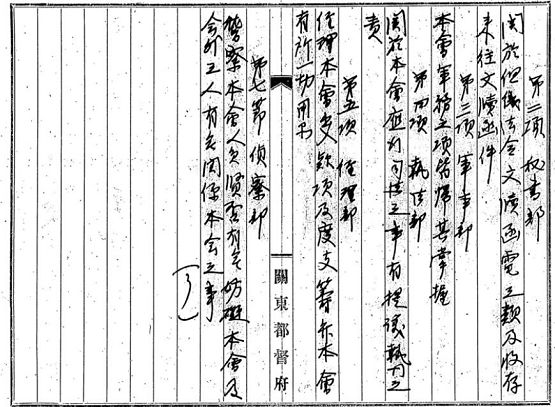 第二項 秘書部
関於但儀法令文牘函電之類及收存
来往文牘函件
第三項 軍事部
本會軍務之項皆歸其掌握
第四項 執法部
関於本會應行司法之事有提議執行之
責
第五項 経理部
経理本會欵項及度支籌弁本會
有所一切用
第七節 偵察部
警察本會人員賢否有無妨碍本會及
会外之人有無関係本会之事
(了)
關東都督府